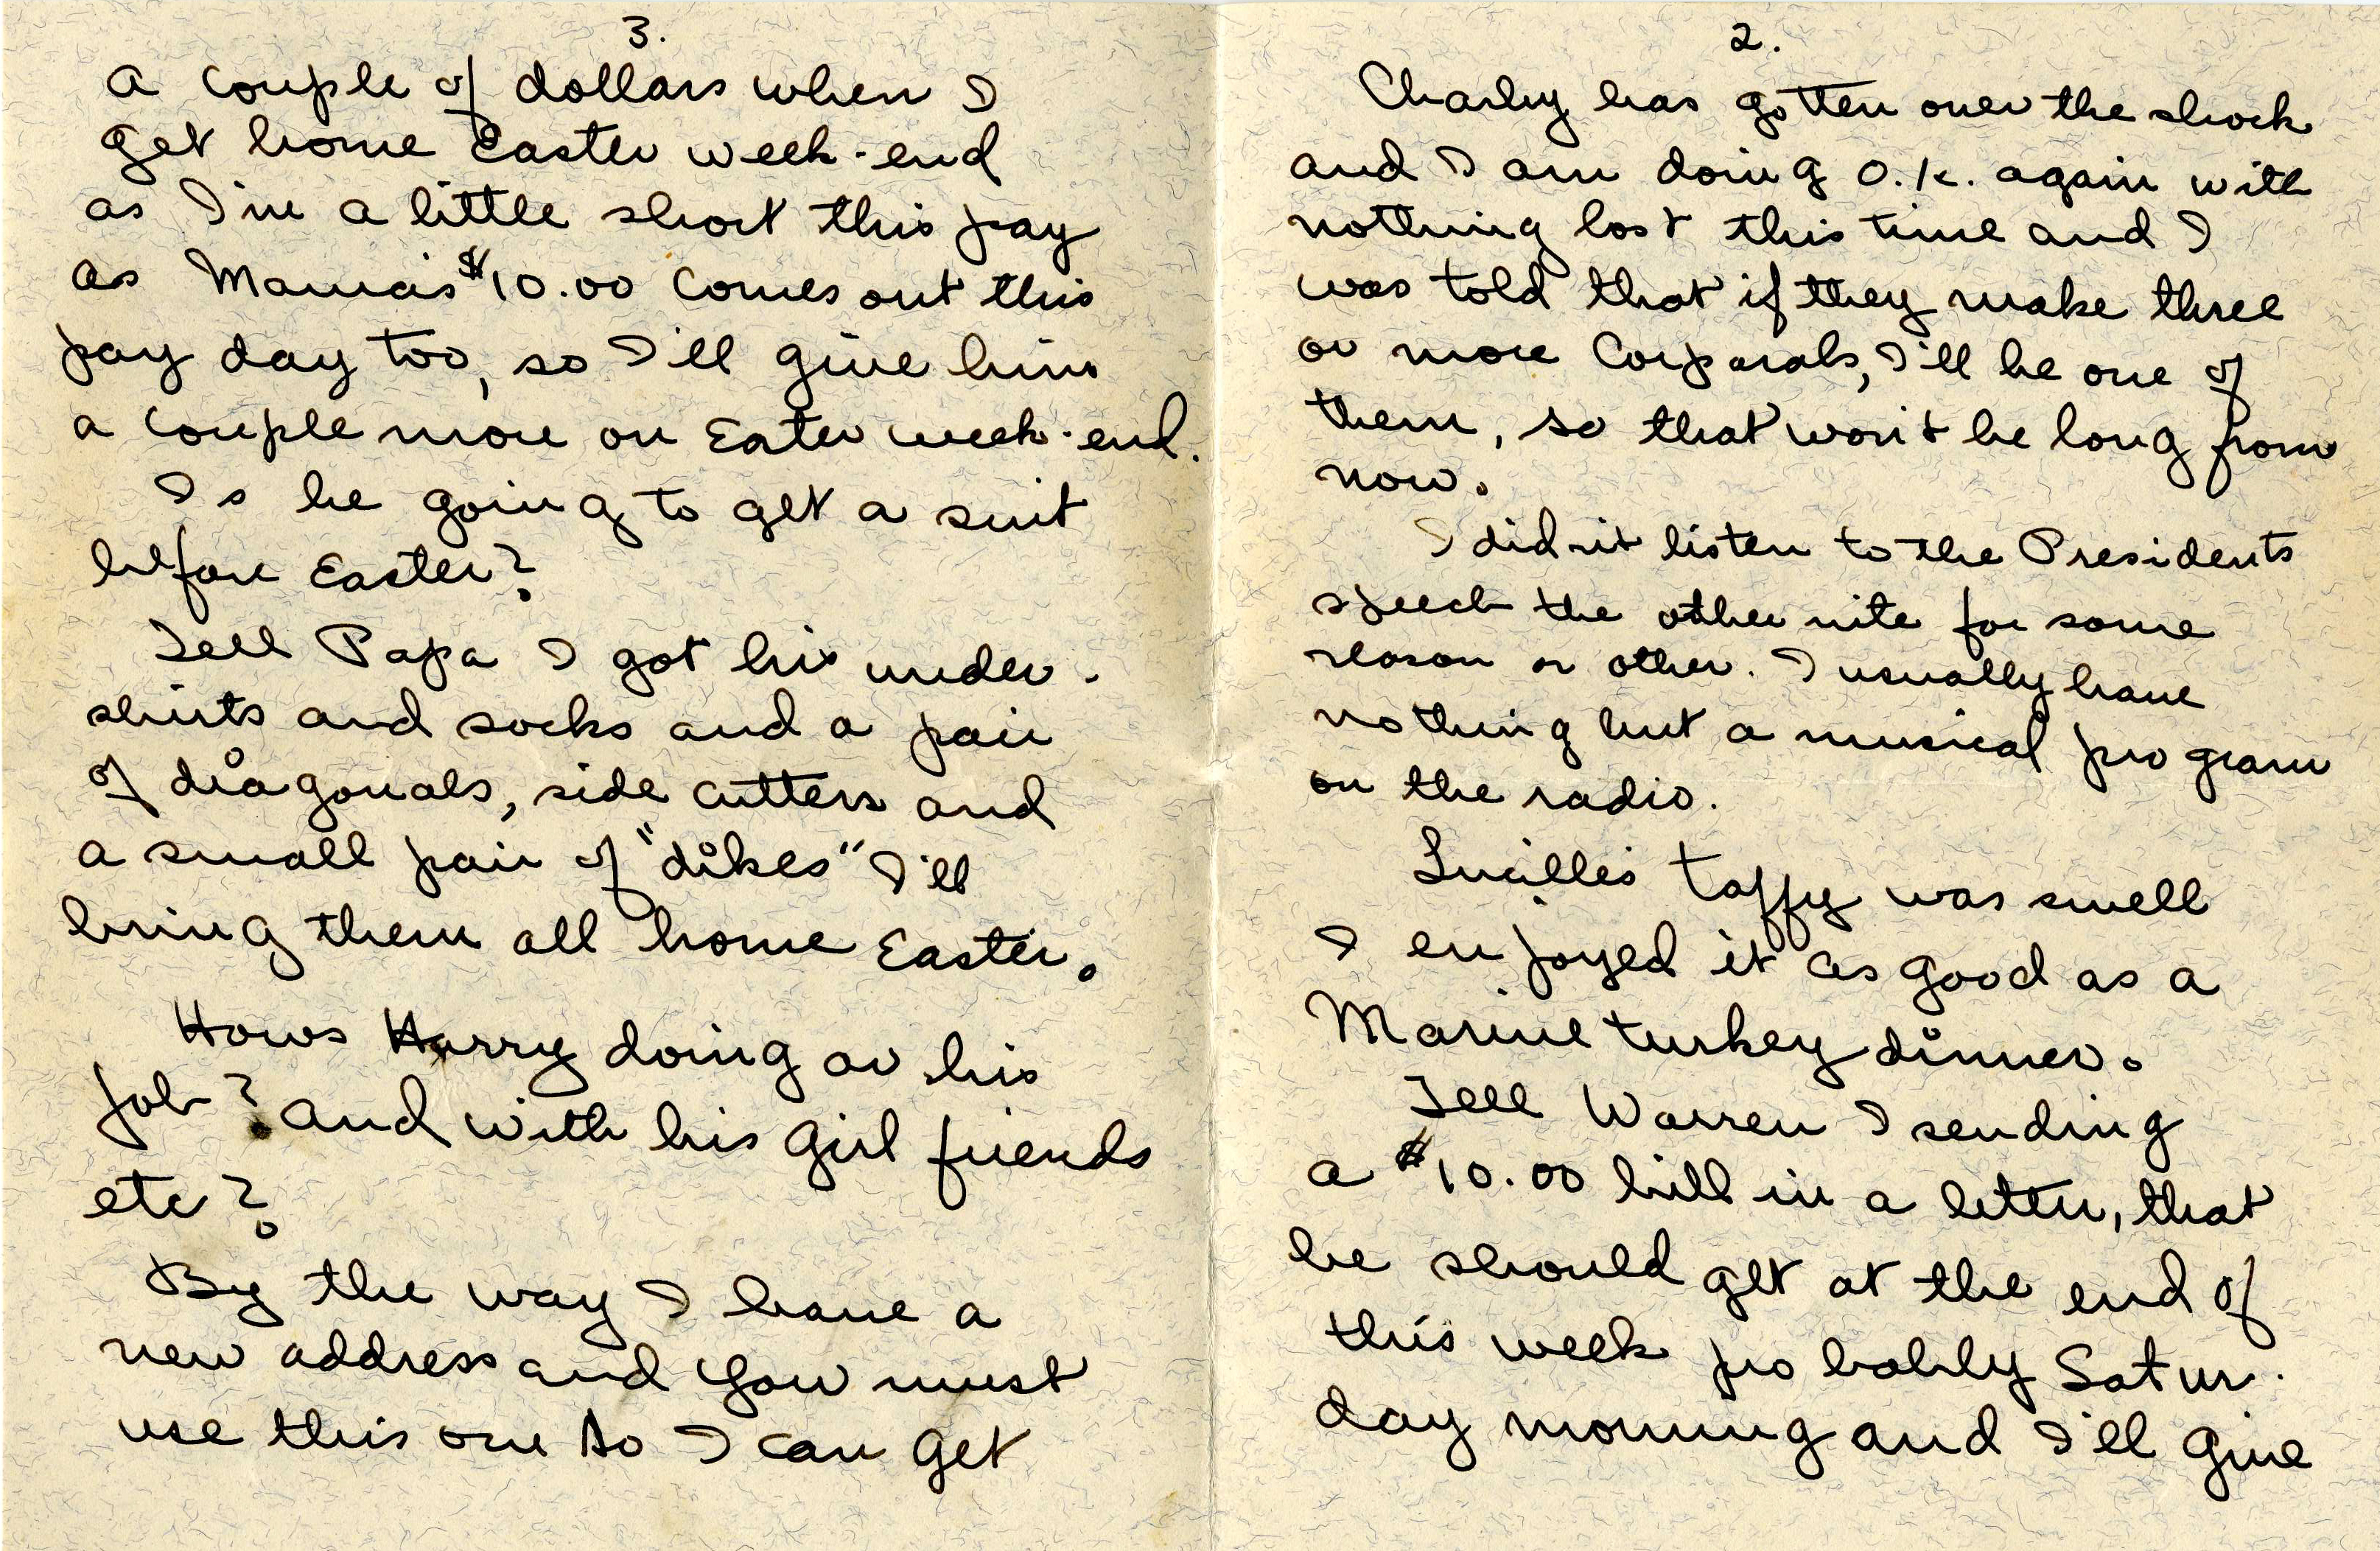 2.
Charley has gotten over the shock
and I am doing O.K. again with
nothing lost this time and I
was told that if they make three
or more Corporals, I'll be one of
them, so that won't be long from
now.
I didn't listen to the Presidents
speech the other nite for some
reason or other. I usually have
nothing but a musical program
on the radio.
Lucille's taffy was swell
I enjoyed it as good as a
Marine turkey dinner.
Tell Warren I sending
a $10.00 bill in a letter, that
he should get at the end of
this week probably Satur-
day morning and I'll give
3.
a couple of dollars when I
get home Easter week-end
as I'm a little short this pay
as Mama's $10.00 comes out this
pay day too, so I'll give him
a couple more on Eater week-end.
Is he going to get a suit
before Easter?
Tell Papa I got his under-
shirts and socks and a pair
of diagonals, side cutters and
a small pair of "dikes" I'll
bring them all home Easter.
Hows Harry doing ov his
job? and with his girl friends
etc?
By the way I have a
new address and you must
use this one so I can get